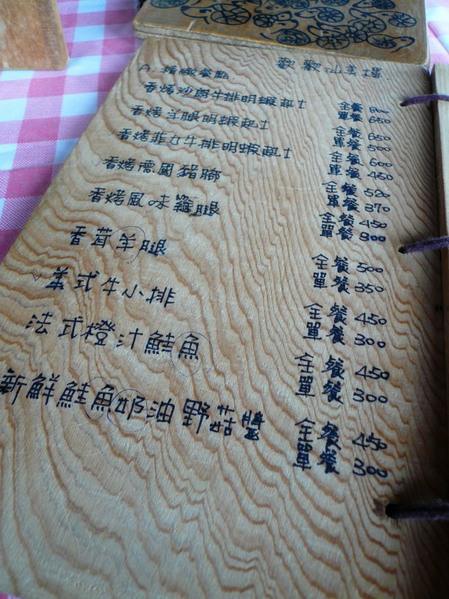 歡歡仙美揚
A. 精緻餐點
香烤沙朗牛排明蝦起士 全餐 800
單餐 650
香烤羊腿明蝦起士 全餐 650
單餐 500
香烤菲力牛排明蝦起士 全餐 600
單餐 450
香烤德國豬腳 全餐 520
單餐 370
香烤風味雞腿 全餐 450
單餐 300
香茸羊腿 全餐 500
單餐 350
美式牛小排 全餐 450
單餐 300
法式橙汁鮭魚 全餐 450
單餐 300
新鮮鮭魚奶油野菇醬 全餐 450
單餐 300